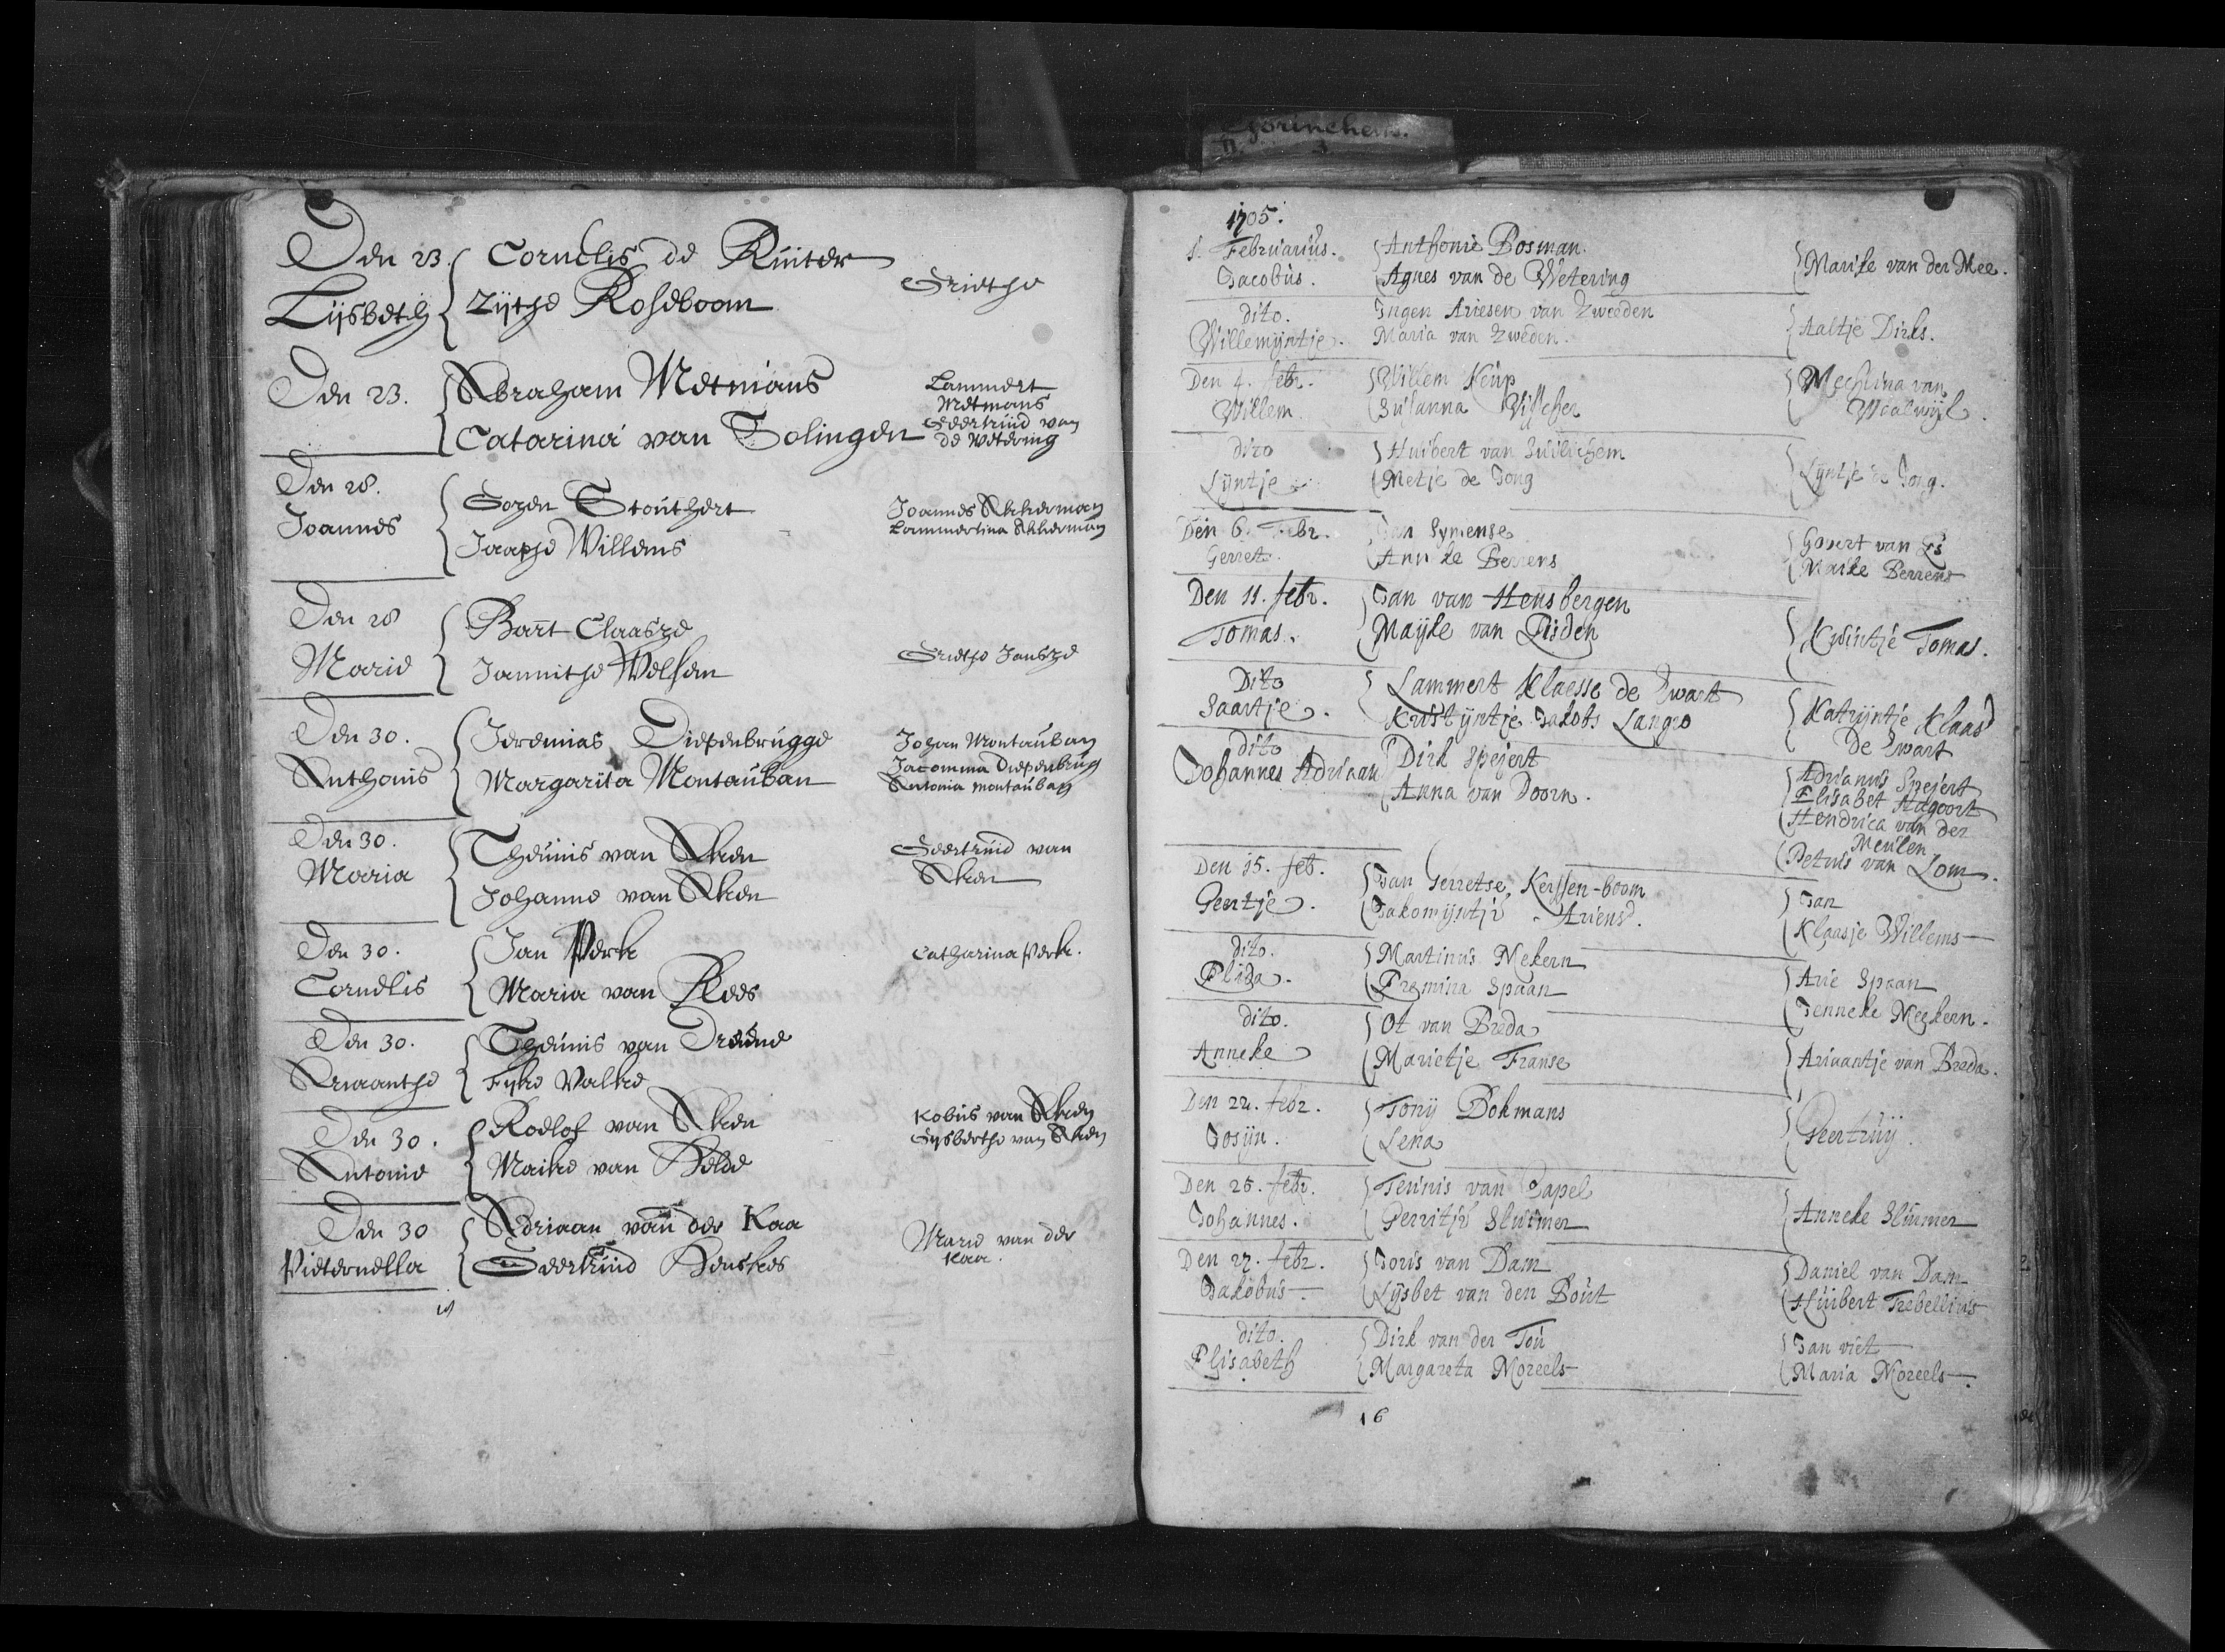 Gorinchem.
Den 23. Cornelis de Ruiter
Lijsbeth Zijtge Roseboom Grietge
Den 23. Abraham Metmans Lammert Metmans
Catarina van Solingen Geertruid van de Wetering
Den 28.
Joannes Gozen Stouthert Joannes Akkerman
Jaapje Willems Lammertina Akkerman
Den 28 Bart Claasze
Marie Jannitge Welsen Grietge Jansze
Den 30. Jeremias Diepenbrugge Johan Montauban
Anthonis Margarita Montauban Jacomina Diepenbrug
Antonia montauban
Den 30. Theunis van Aken Geertruid van
Maria Johanna van Aken Aken
Den 30. Jan Perk Catharina Perk.
Cornelis Maria van Rees
Den 30. Theunis van
Ariaantge Fijke Valke
Den 30. Roelof van Aken Kobus van Aken
Antonie Maike van Gijsbertge van Aken
Den 30 Adriaan van der Kaa Marie van der
Pieternella Geertruid Kaa.
1705.
1. Februarius. Anthonie Bosman. Marike van der Mee.
Jacobus. Agnes van de Wetering
dito. Ingen Ariesen van Zweeden Aaltje Dirks.
Willemijntje. Maria van Zweden.
Den 4. febr. Willem Keup Mechlina van
Willem Susanna Visscher Waalwijk.
dito Huibert van Zuilichem Lijntje de Jong.
Lijntje Metje de Jong
Den 6. Febr. Jan Symense Govert van Es
Gerret. Anneke Berrens Maike Berrens
Den 11. febr. Jan van Hensbergen
Tomas. Mayke van Lisden Kwintje Tomas.
Dito Lammert Klaesse de Zwart Katrijntje Klaas
Saartje. Kristijntje Jakobs Lange de Zwart
dito Dirk Spejert Adrianus Spejert
Johannes Adriaan Anna van Doorn. Elisabet
Hendrica van der
Meulen
Petrus van Lom.
Den 15. feb. Jan Gerretse Kerssen-boom Jan
Geertje. Jakomijntje Ariens. Klaasje Willems
dito. Martinus Mekern Arie Spaan
Elida. Premina Spaan Jenneke Meekern.
dito. Ot van Breda
Anneke Marietje Franse Ariaantje van Breda.
Den 22. febr. Tony Bokmans Geertruy.
Josijn. Lena
Den 25. febr. Teunis van Capel
Johannes. Gerritje Sluimer Anneke Sluimer
Den 27. febr. Joris van Dam Daniel van Dam
Jakobus Lijsbet van den Bout Huibert Trebellius
dito. Dirk van der Tou Jan viet
Elisabeth Margareta Moreels Maria Moreels.
16